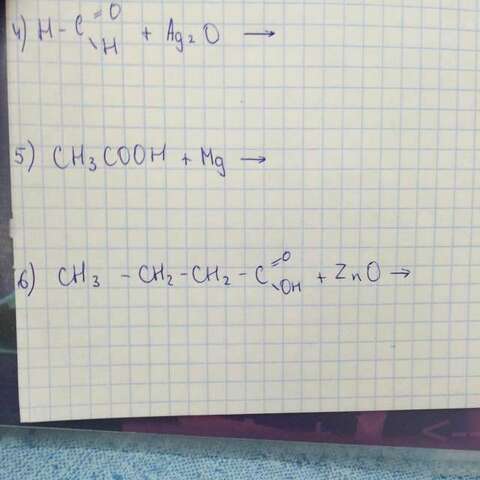 4) H - C =O \H + Ag₂O →
5) CH₃COOH + Mg →
6) CH₃ - CH₂ - CH₂ - C =O \OH + ZnO →